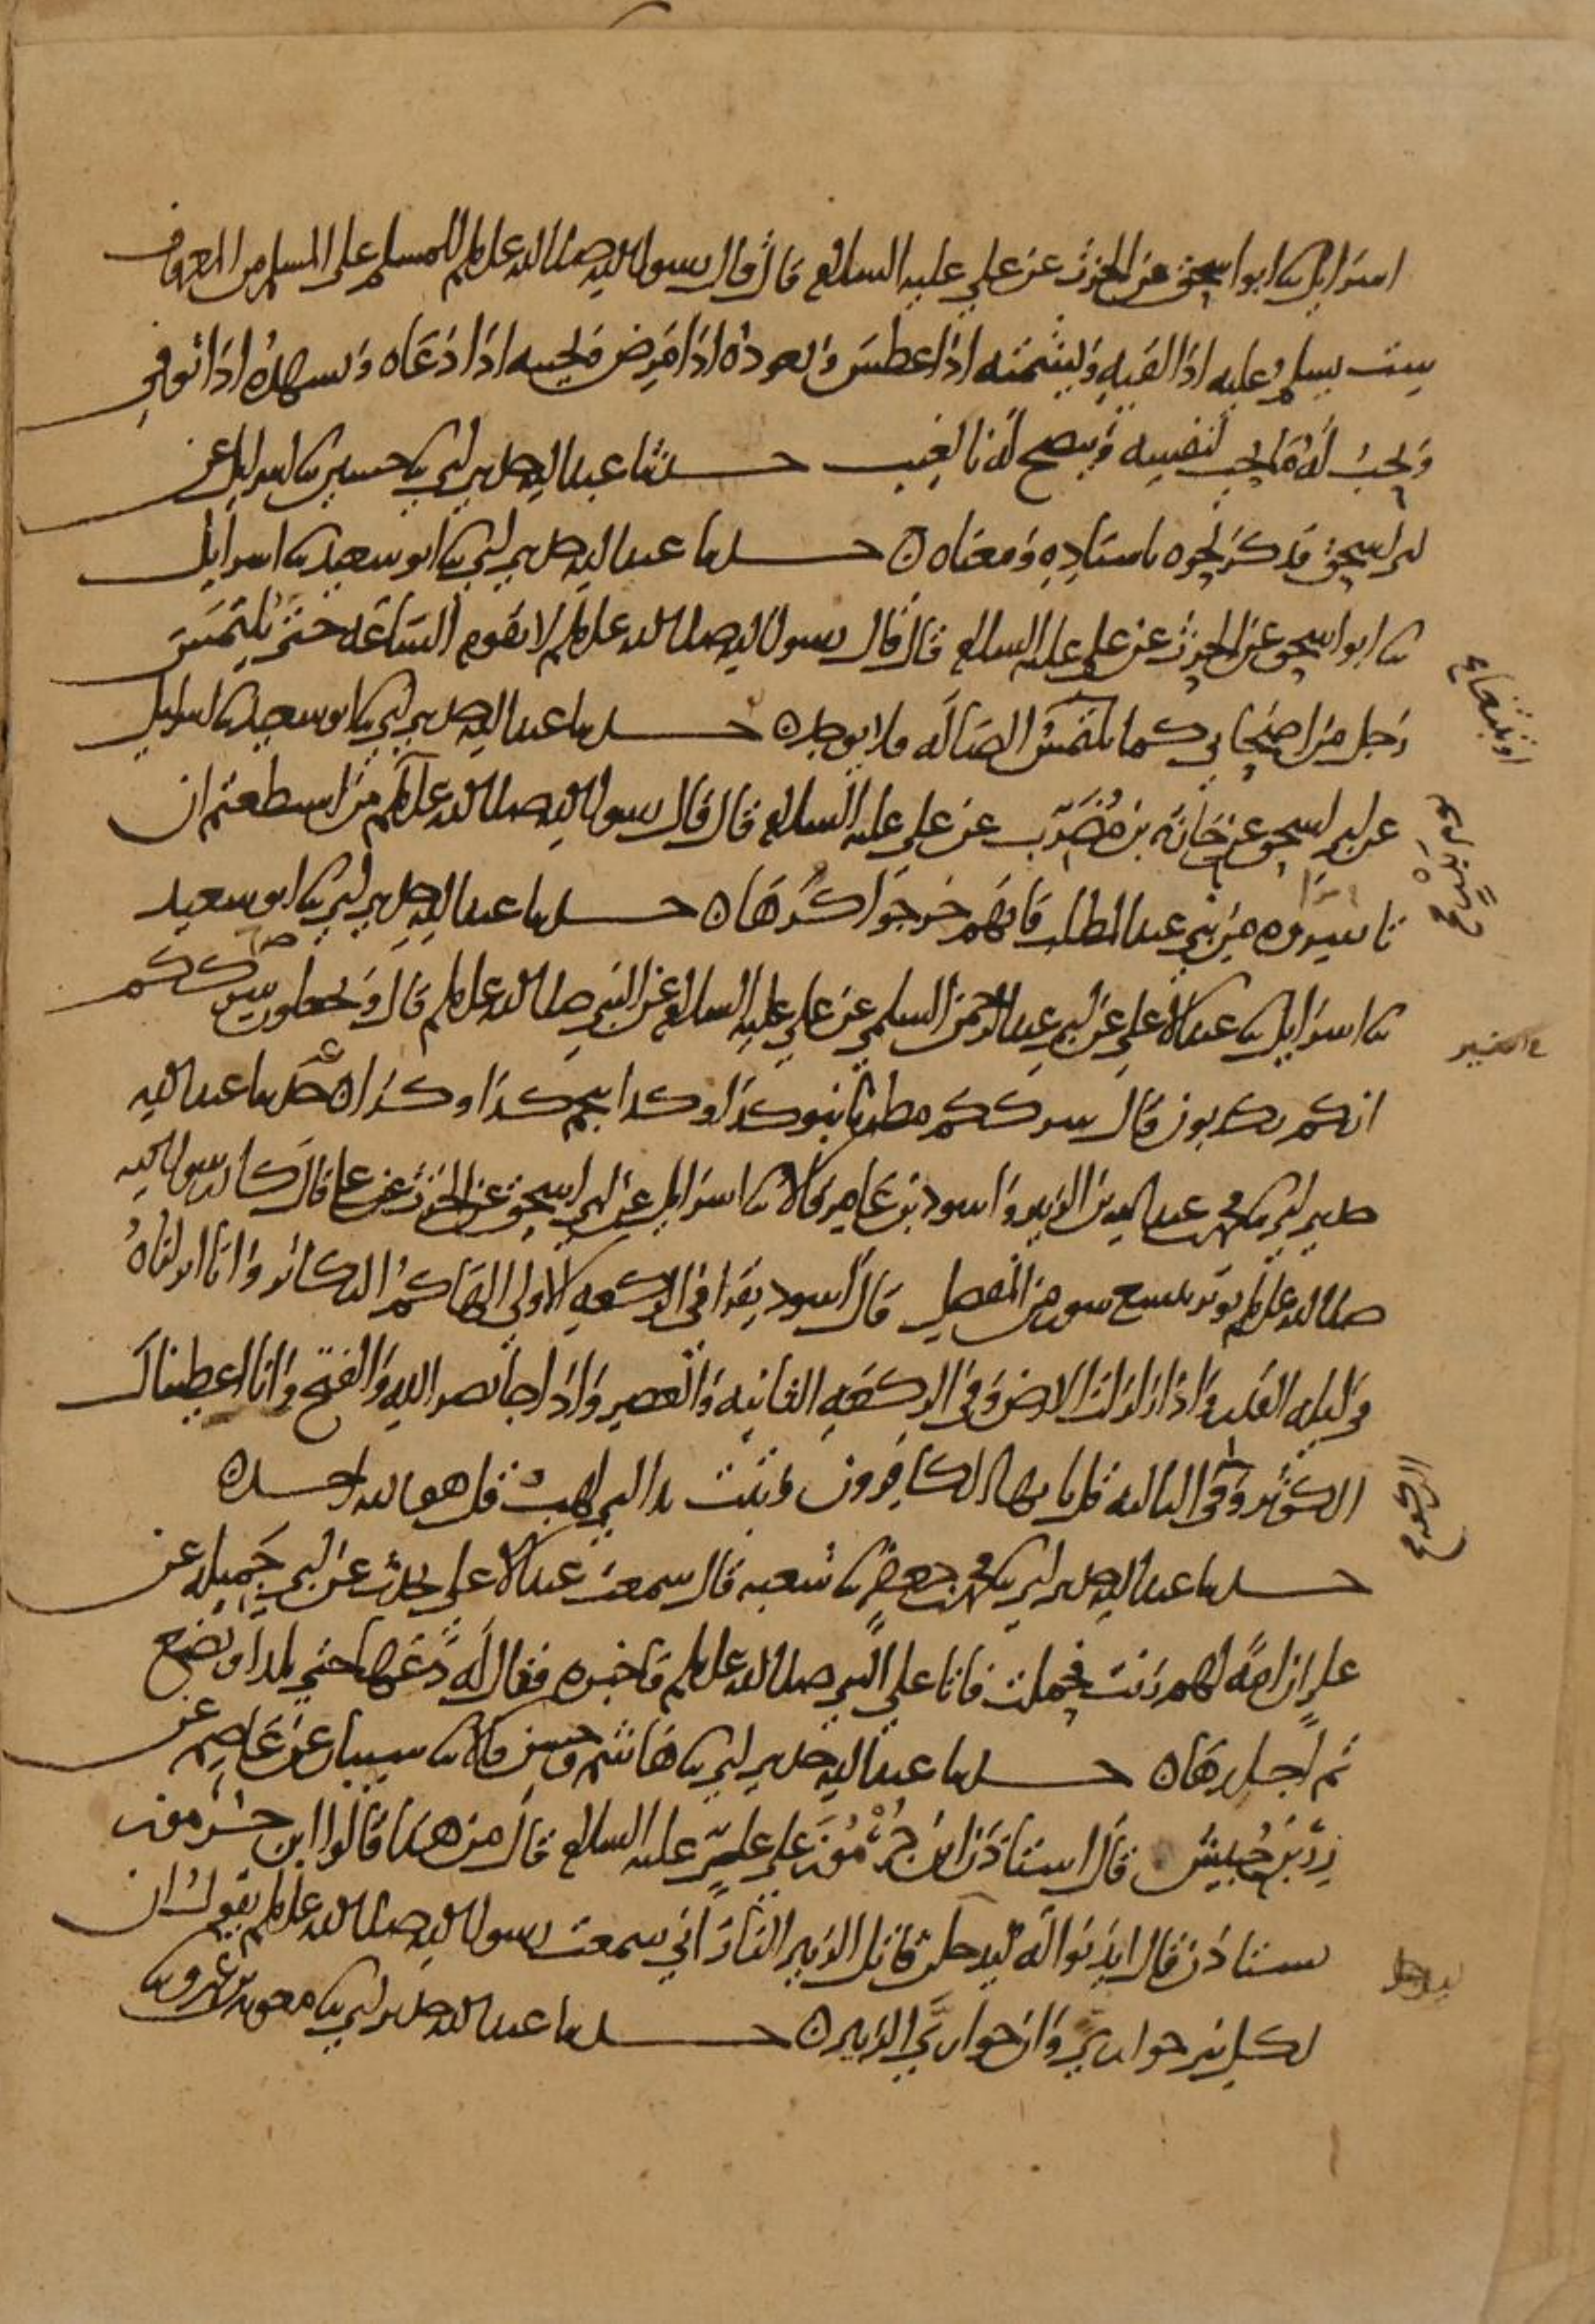 اسرايل ثنا ابو اسحق عن الحرث عن علي عليه السلام قال قال رسول الله صلى الله عليه وسلم للمسلم على المسلم من المعروف
ست يسلم عليه اذا لقيه ويشمته اذا عطس ويعوده اذا مرض ويجيبه اذا دعاه ويشهده اذا توفي
ويحب له ما يحب لنفسه وينصح له بالغيب حدثنا عبد الله حدثني ابي ثنا حسين ثنا اسرايل عن
ابي اسحق فذكر نحوه باسناده ومعناه ۞ حدثنا عبد الله حدثني ابي ثنا ابو سعيد ثنا اسرايل
ثنا ابو اسحق عن الحرث عن علي عليه السلام قال قال رسول الله صلى الله عليه وسلم لا تقوم الساعة حتى يلتمس
رجل من اصحابي كما تلتمس الضالة فلا يوجد ۞ حدثنا عبد الله حدثني ابي ثنا ابو سعيد ثنا اسرايل
عن ابي اسحق عن حارثة بن مضرب عن علي عليه السلام قال قال رسول الله صلى الله عليه وسلم من استطعتم ان
تاسروه من بني عبد المطلب فانهم خرجوا كرها ۞ حدثنا عبد الله حدثني ابي ثنا ابو سعيد
ثنا اسرايل ثنا عبد الاعلى عن ابي عبد الرحمن السلمي عن علي عليه السلام عن النبي صلى الله عليه وسلم قال وتجعلون شرككم
انكم تكذبون قال شرككم مطرنا بنو كذا وكذا بنجم كذا وكذا ۞ حدثنا عبد الله
حدثني ابي ثنا محمد بن عبد الله بن الزبير واسود بن عامر قالا ثنا اسرايل عن ابي اسحق عن الحرث عن علي قال كان رسول الله
صلى الله عليه وسلم يوتر بتسع سور من المفصل قال اسود يقرا في الركعة الاولى الهاكم التكاثر وانا انزلناه
في ليلة القدر واذا زلزلت الارض وفي الركعة الثانية والعصر واذا جا نصر الله والفتح وانا اعطيناك
الكوثر وفي الثالثة قل يا يها الكافرون وتبت يدا ابي لهب وقل هو الله احد ۞
حدثنا عبد الله حدثني ابي ثنا محمد بن جعفر ثنا شعبه قال سمعت عبد الاعلى يحدث عن ابي جميلة عن
علي ان امة لهم زنت فحملت فاتا علي النبي صلى الله عليه وسلم فاخبره فقال له دعها حتى تلد او تضع
ثم اجلدها ۞ حدثنا عبد الله حدثني ابي ثنا هاشم وحسن قالا ثنا شيبان عن عاصم عن
زر بن حبيش قال استاذن ابن جرموز على علي عليه السلام قال من هذا قالوا ابن جرموز
يستاذن قال ايذنوا له ليدخل قاتل الزبير النار اني سمعت رسول الله صلى الله عليه وسلم يقول ان
لكل نبي حواري وان حواريي الزبير ۞ حدثنا عبد الله حدثني ابي ثنا معوية بن عمرو ثنا